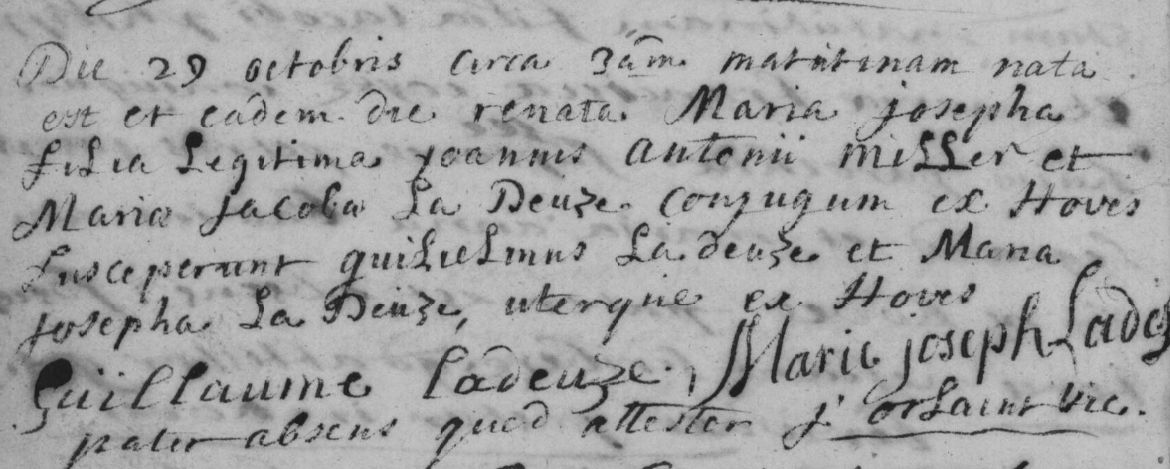 Die 29 octobris circa 3am matutinam nata
est et eadem die renata Maria josepha
filia Legitima joannis Antonii Miller et
Mariæ jacobæ La Deuze conjugum ex Hoves
susceperunt guilielmus La deuze et Maria
josepha La Deuze, uterque ex Hoves
Guillaume Ladeuze, Marie joseph Lade
pater absens quod attestor j' orsaint vic.